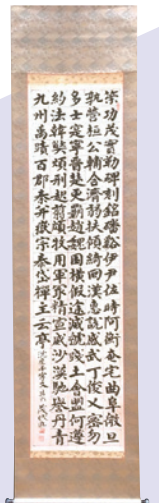 策功茂實勒碑刻銘磻谿伊尹佐時阿衡奄宅曲阜微旦
孰營桓公輔合濟弱扶傾綺迴漢惠說感武丁俊乂密勿
多士寔寧晉楚更霸趙魏困橫假途滅虢踐土會盟何遵
約法韓弊煩刑起翦頗牧用軍最精宣威沙漠馳譽丹青
九州禹蹟百郡秦并嶽宗泰岱禪主云亭